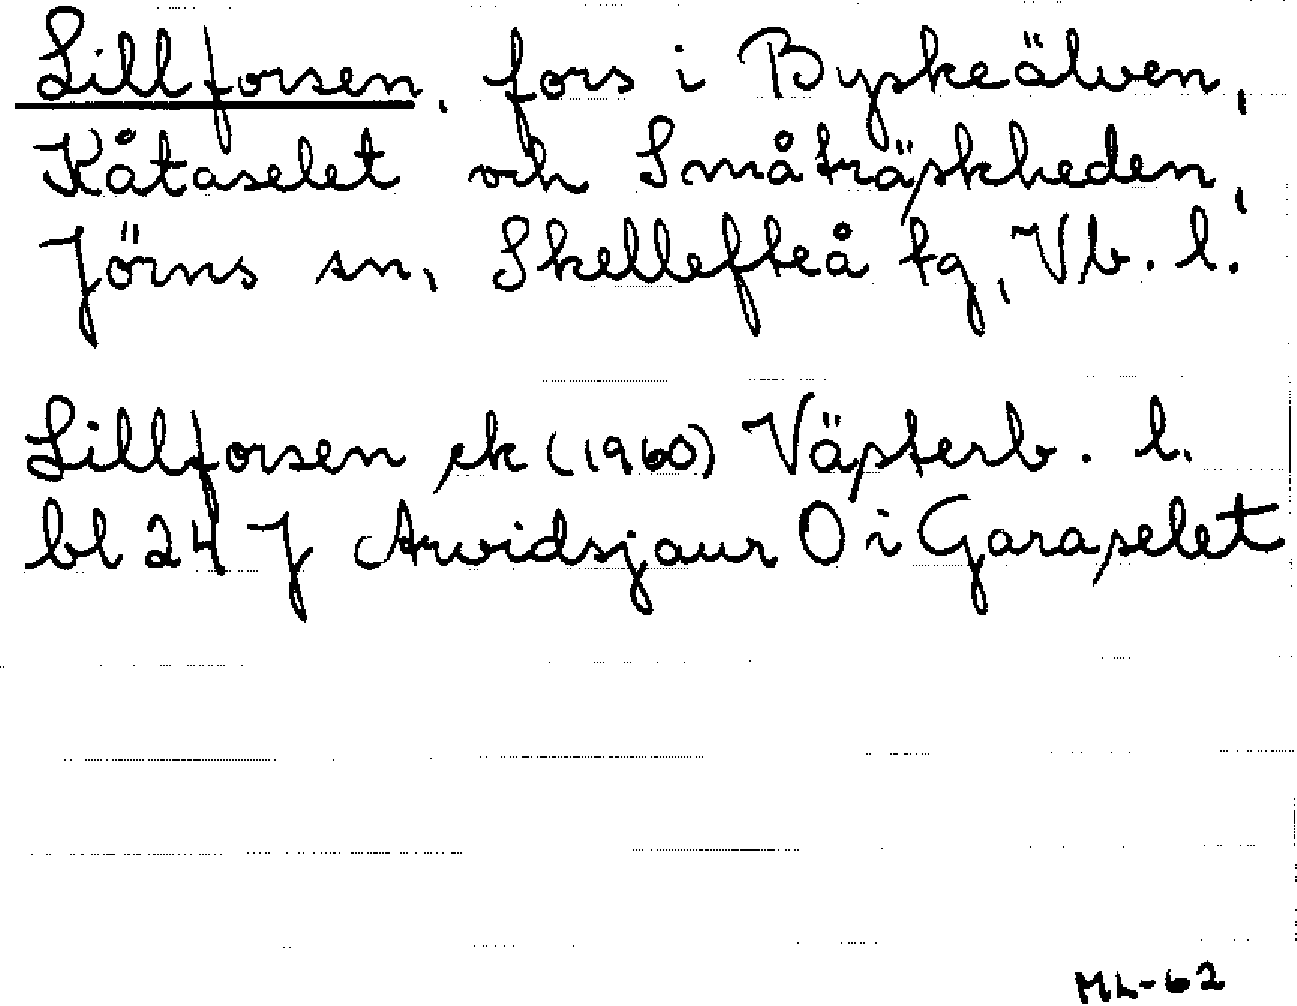 Lillforsen, fors i Byskeälven,
Kåtaselet och Småträskheden,
Jörns sn, Skellefteå tg, Vb. l.
Lillforsen ek (1960) Västerb. l.
bl 24 J Arvidsjaur O i Garaselet
ML-62